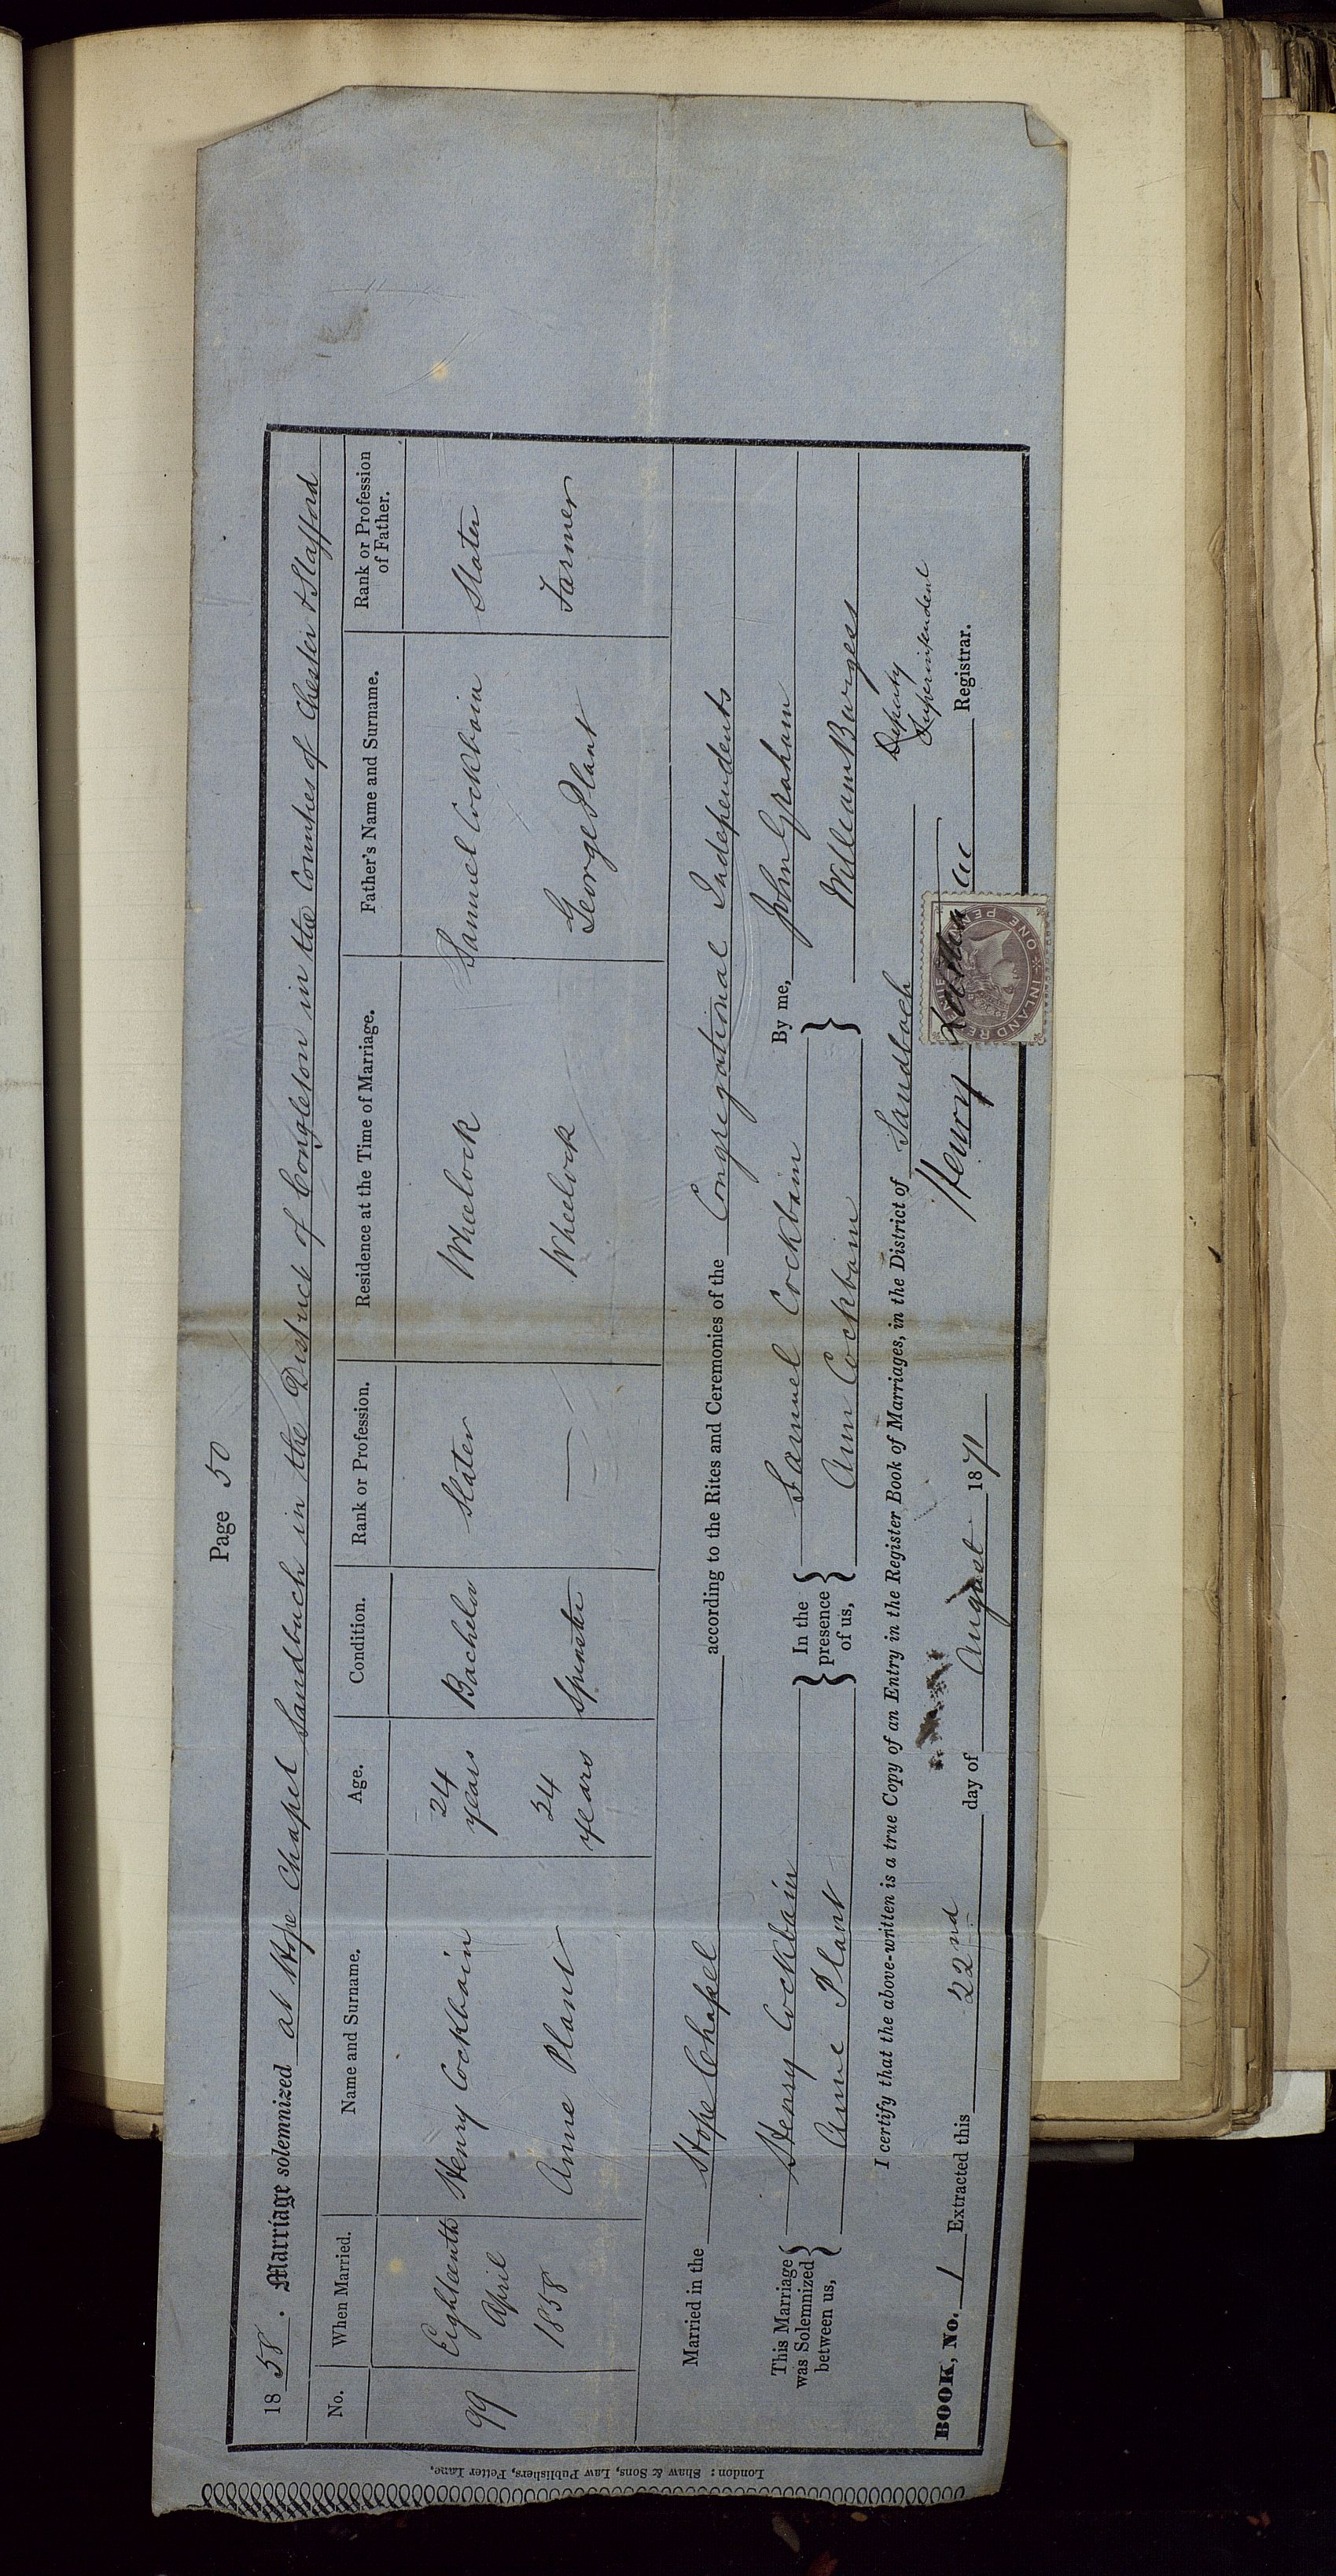 Page 50
1858. Marriage solemnized at Hope Chapel Sandbach in the District of Congleton in the Counties of Chester & Stafford
No. When Married. Name and Surname. Age. Condition. Rank or Profession. Residence at the Time of Marriage. Father's Name and Surname. Rank or Profession of Father.
99 Eighteenth April 1858 Henry Cockbain 24 years Bachelor Slater Wheelock Samuel Cockbain Slater
Anne Plant 24 years Spinster — Wheelock George Plant Farmer
Married in the Hope Chapel according to the Rites and Ceremonies of the Congregational Independents
This Marriage was Solemnized between us, Henry Cockbain In the presence of us, Samuel Cockbain By me, John Graham
Anne Plant Ann Cockbain William Burgess
I certify that the above-written is a true Copy of an Entry in the Register Book of Marriages, in the District of Sandbach
Deputy
Superintendent
BOOK, No. 1 Extracted this 22nd day of August 1871 Henry Registrar.
INLAND REVENUE ONE PENNY
London: Shaw & Sons, Law Publishers, Fetter Lane.